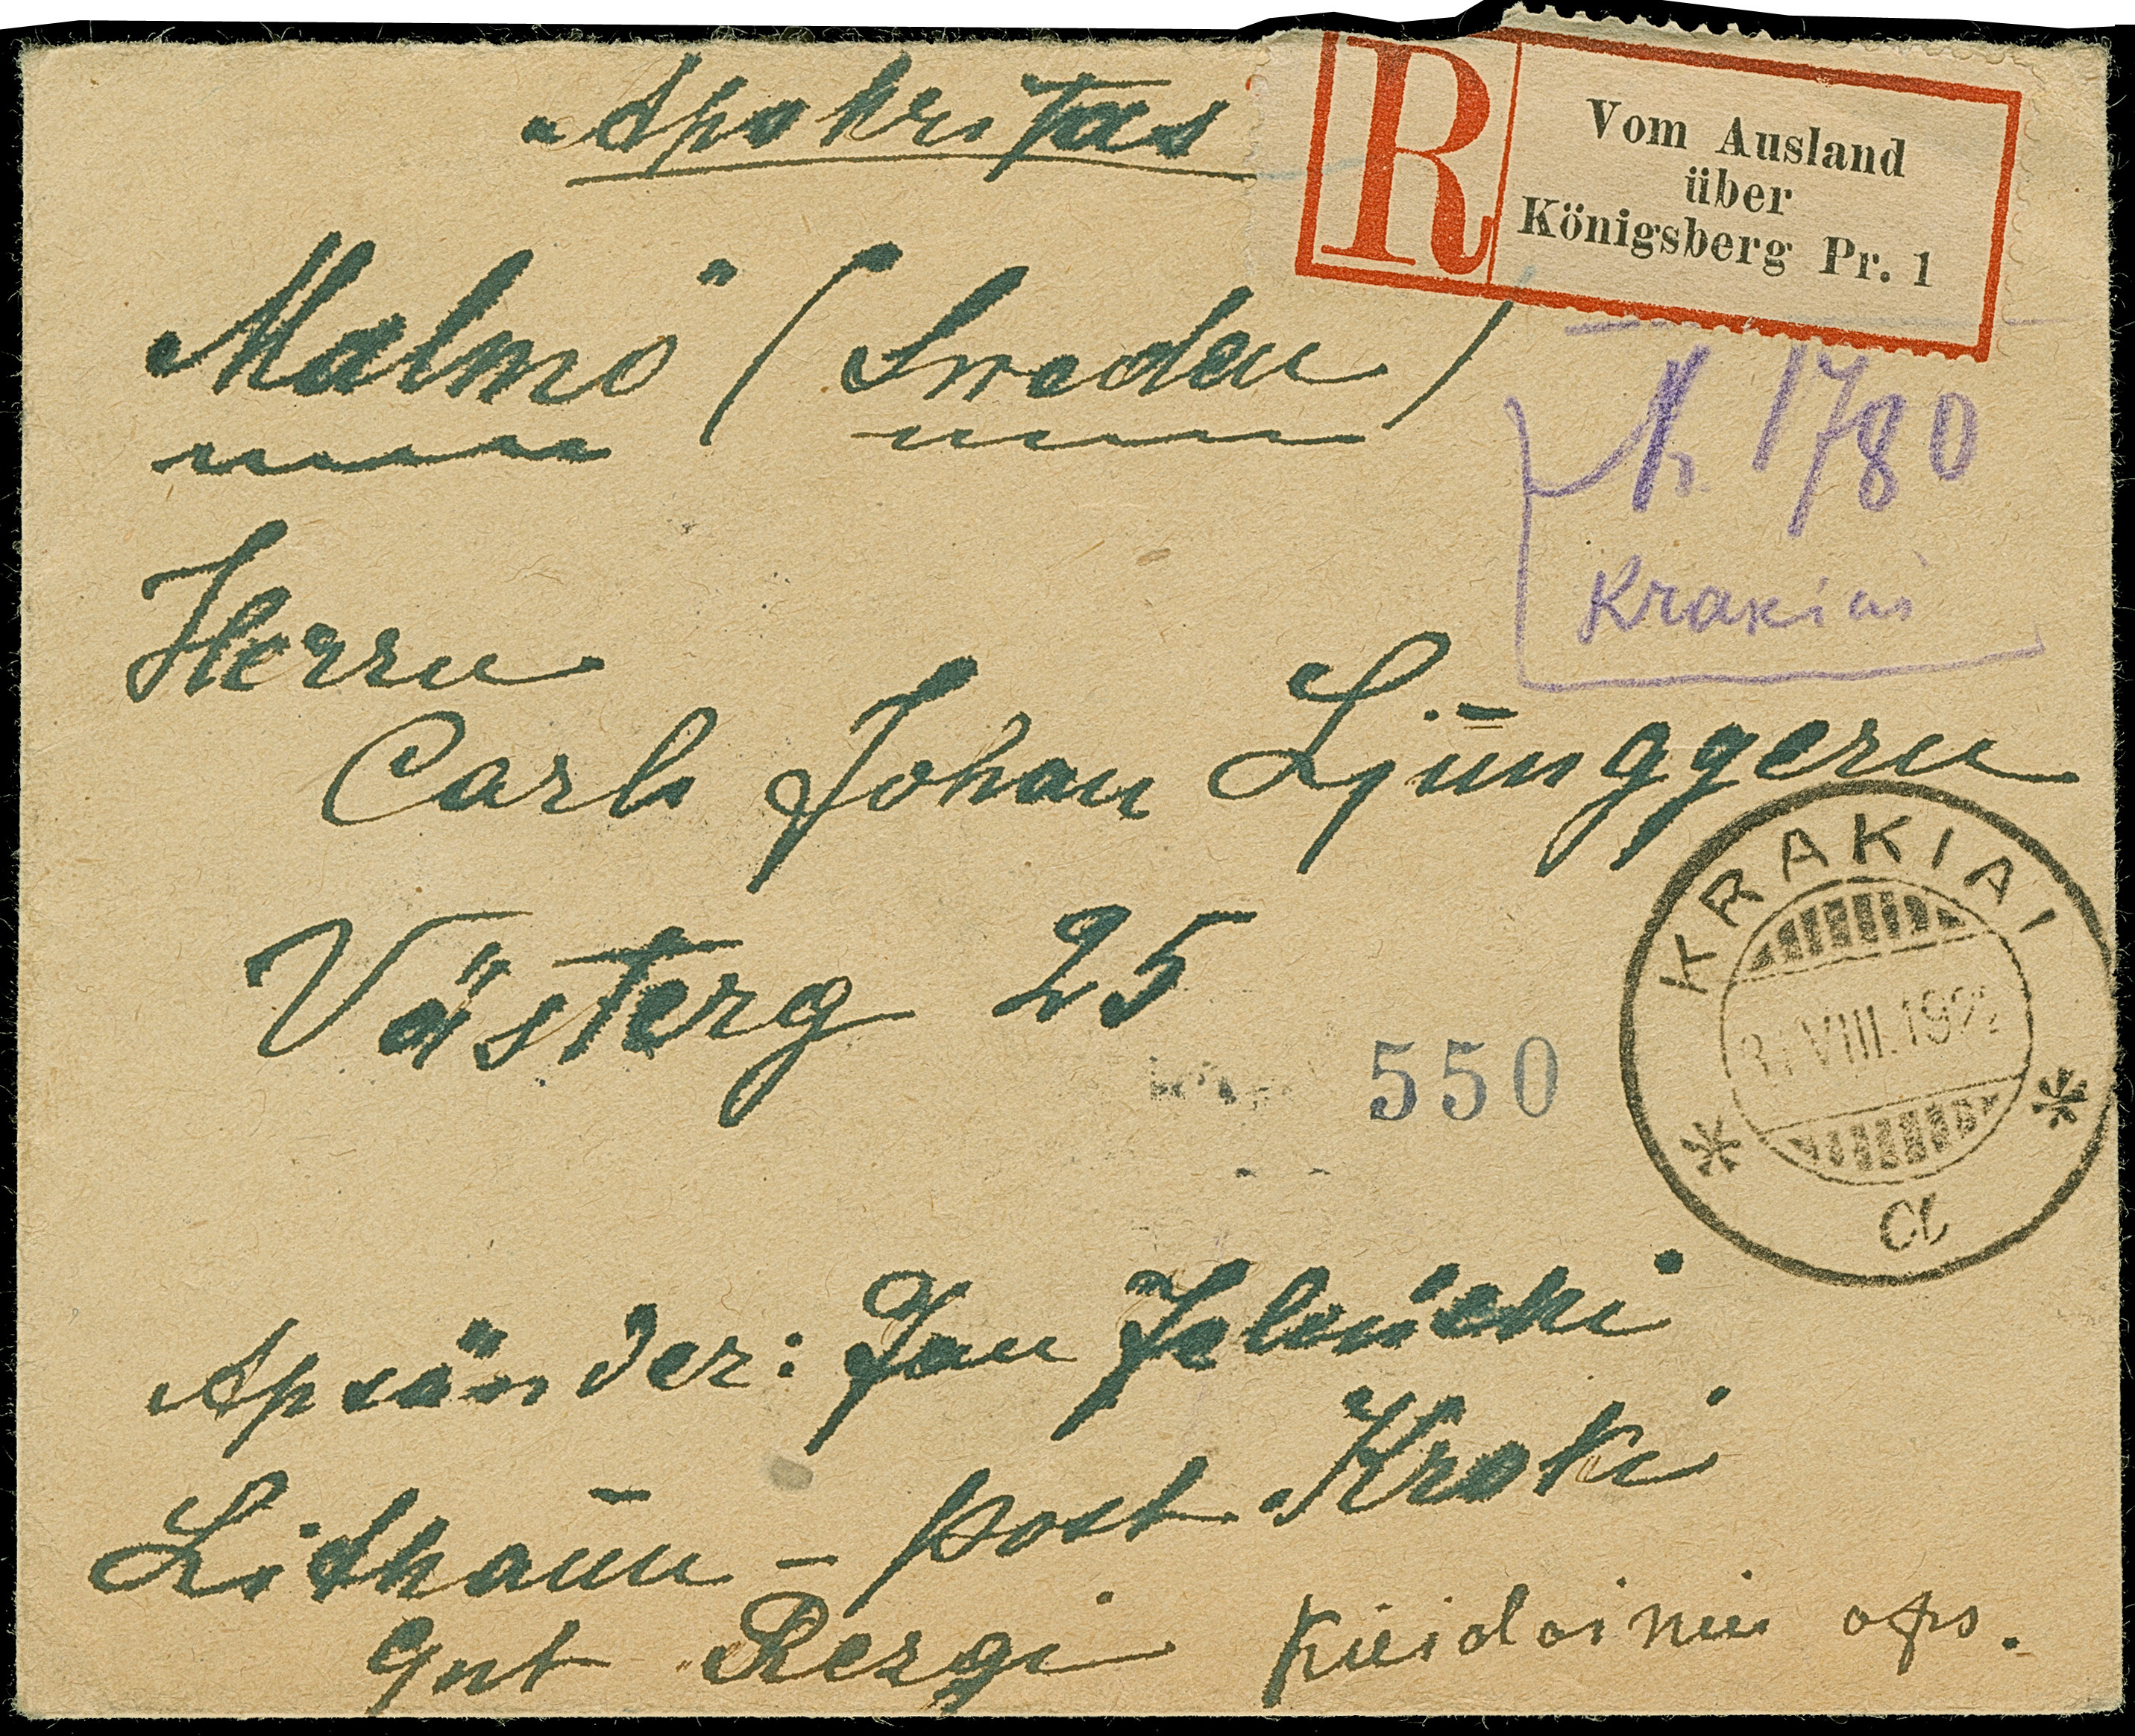 Apakritas
R
Vom Ausland
über
Königsberg Pr. 1
Malmö (Sweden)
1780
Herrn
Carl Johan Ljūnggern
Västerg 25
550
KRAKIAI
VIII.192
a
Apsänder: Jan
Lithaūn - post Kroki
gut Rezgi Kėidainių aps.